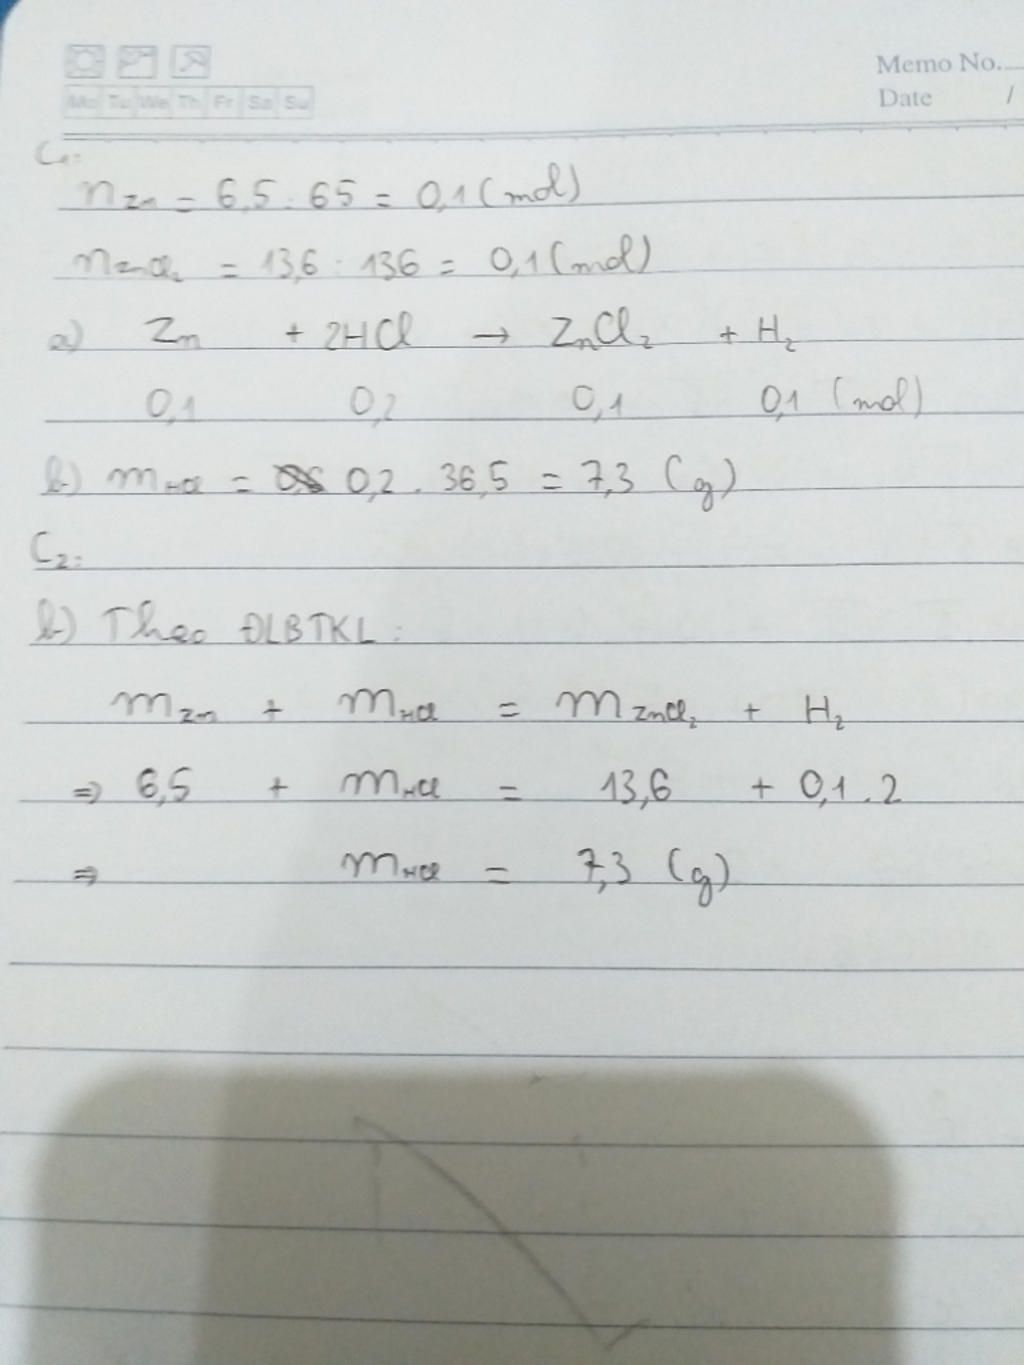 Memo No.
Mo Tu We Th Fr Sa Su
Date /
C₁:
n Zn = 6,5 : 65 = 0,1 (mol)
n ZnCl₂ = 13,6 : 136 = 0,1 (mol)
a) Zn + 2HCl → ZnCl₂ + H₂
0,1 0,2 0,1 0,1 (mol)
b) m HCl = 0,2 . 36,5 = 7,3 (g)
C₂:
b) Theo ĐLBTKL:
m Zn + m HCl = m ZnCl₂ + H₂
⇒ 6,5 + m HCl = 13,6 + 0,1 . 2
⇒ m HCl = 7,3 (g)